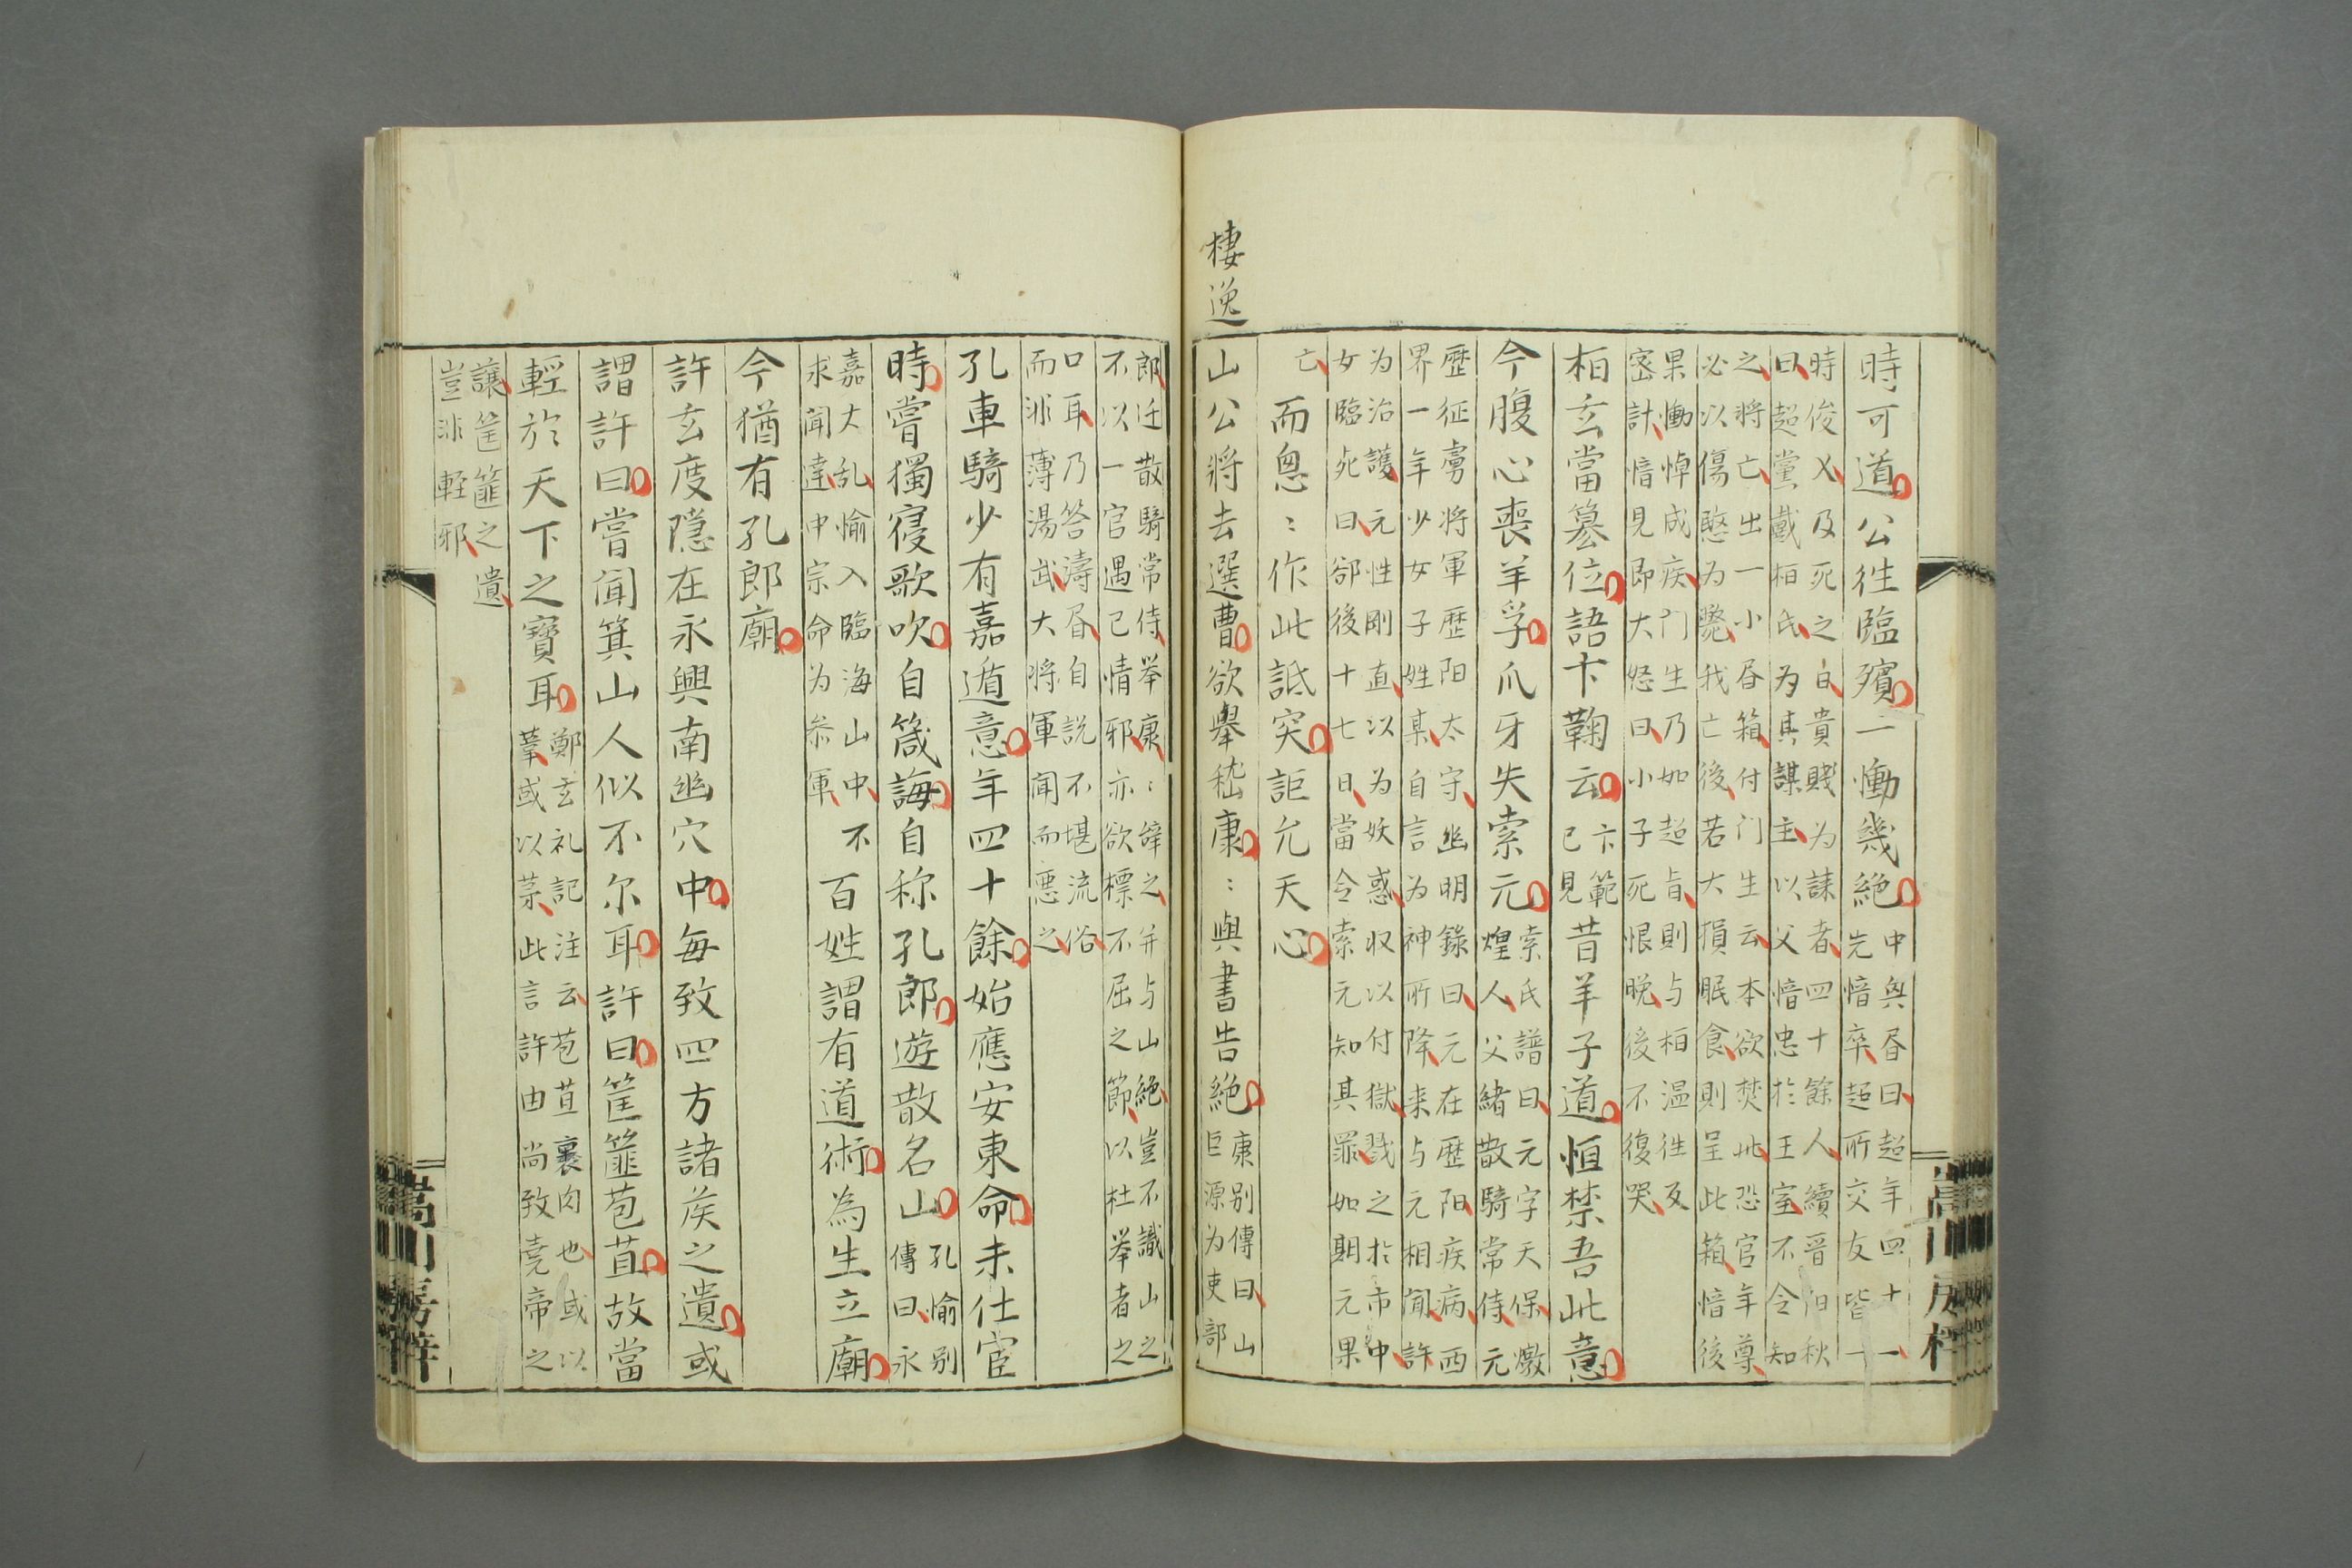 棲逸
時可道公徃臨殯一慟幾絕
中興昬曰超年四十一
先愔卒超所交友皆一
時俊乂及死之日貴賤为誄者四十餘人續晋阳秋
曰超黨戴栢氏为其謀主以父愔忠於王室不令知
之將亡出一小昬箱付门生云本欲焚此恐官年尊
必以傷愍为斃我亡後若大損眠食則呈此箱愔後
果慟悼成疾门生乃如超旨則与栢温徃反
密計愔見即大怒曰小子死恨晚後不復哭
栢玄當篡位語卞鞠云
卞範
已見
昔羊子道恒禁吾此意
今腹心喪羊孚爪牙失索元
索氏譜曰元字天保燉
煌人父緒散騎常侍元
歷征虜将軍歷阳太守幽明錄曰元在歷阳疾病西
界一年少女子姓某自言为神所降来与元相聞許
为治護元性剛直以为妖惑収以付獄戮之於市中
女臨死曰郤後十七日當令索元知其罪如期元果
亡
而悤：作此詆突詎允天心
山公將去選曹欲舉嵇康：與書告絕
康别傳曰山
巨源为吏部
郎迁散騎常侍举康：辞之并与山絕豈不識山之
不以一官遇己情邪亦欲標不屈之節以杜举者之
口耳乃答濤昬自説不堪流俗
而非薄湯武大将軍闻而惡之
孔車騎少有嘉遁意年四十餘始應安東命未仕宦
時嘗獨寝歌吹自箴誨自称孔郎遊散名山
孔愉别
傳曰永
嘉大乱愉入臨海山中不
求闻達中宗命为叅軍
百姓謂有道術為生立廟
今猶有孔郎廟
許玄度隱在永興南幽穴中每致四方諸侯之遺或
謂許曰嘗聞箕山人似不尔耳許曰筐篚苞苴故當
輕於天下之寶耳
鄭玄礼記注云苞苴裹肉也或以
葦或以茅此言許由尚致堯帝之
讓筐篚之遺
豈非軽邪